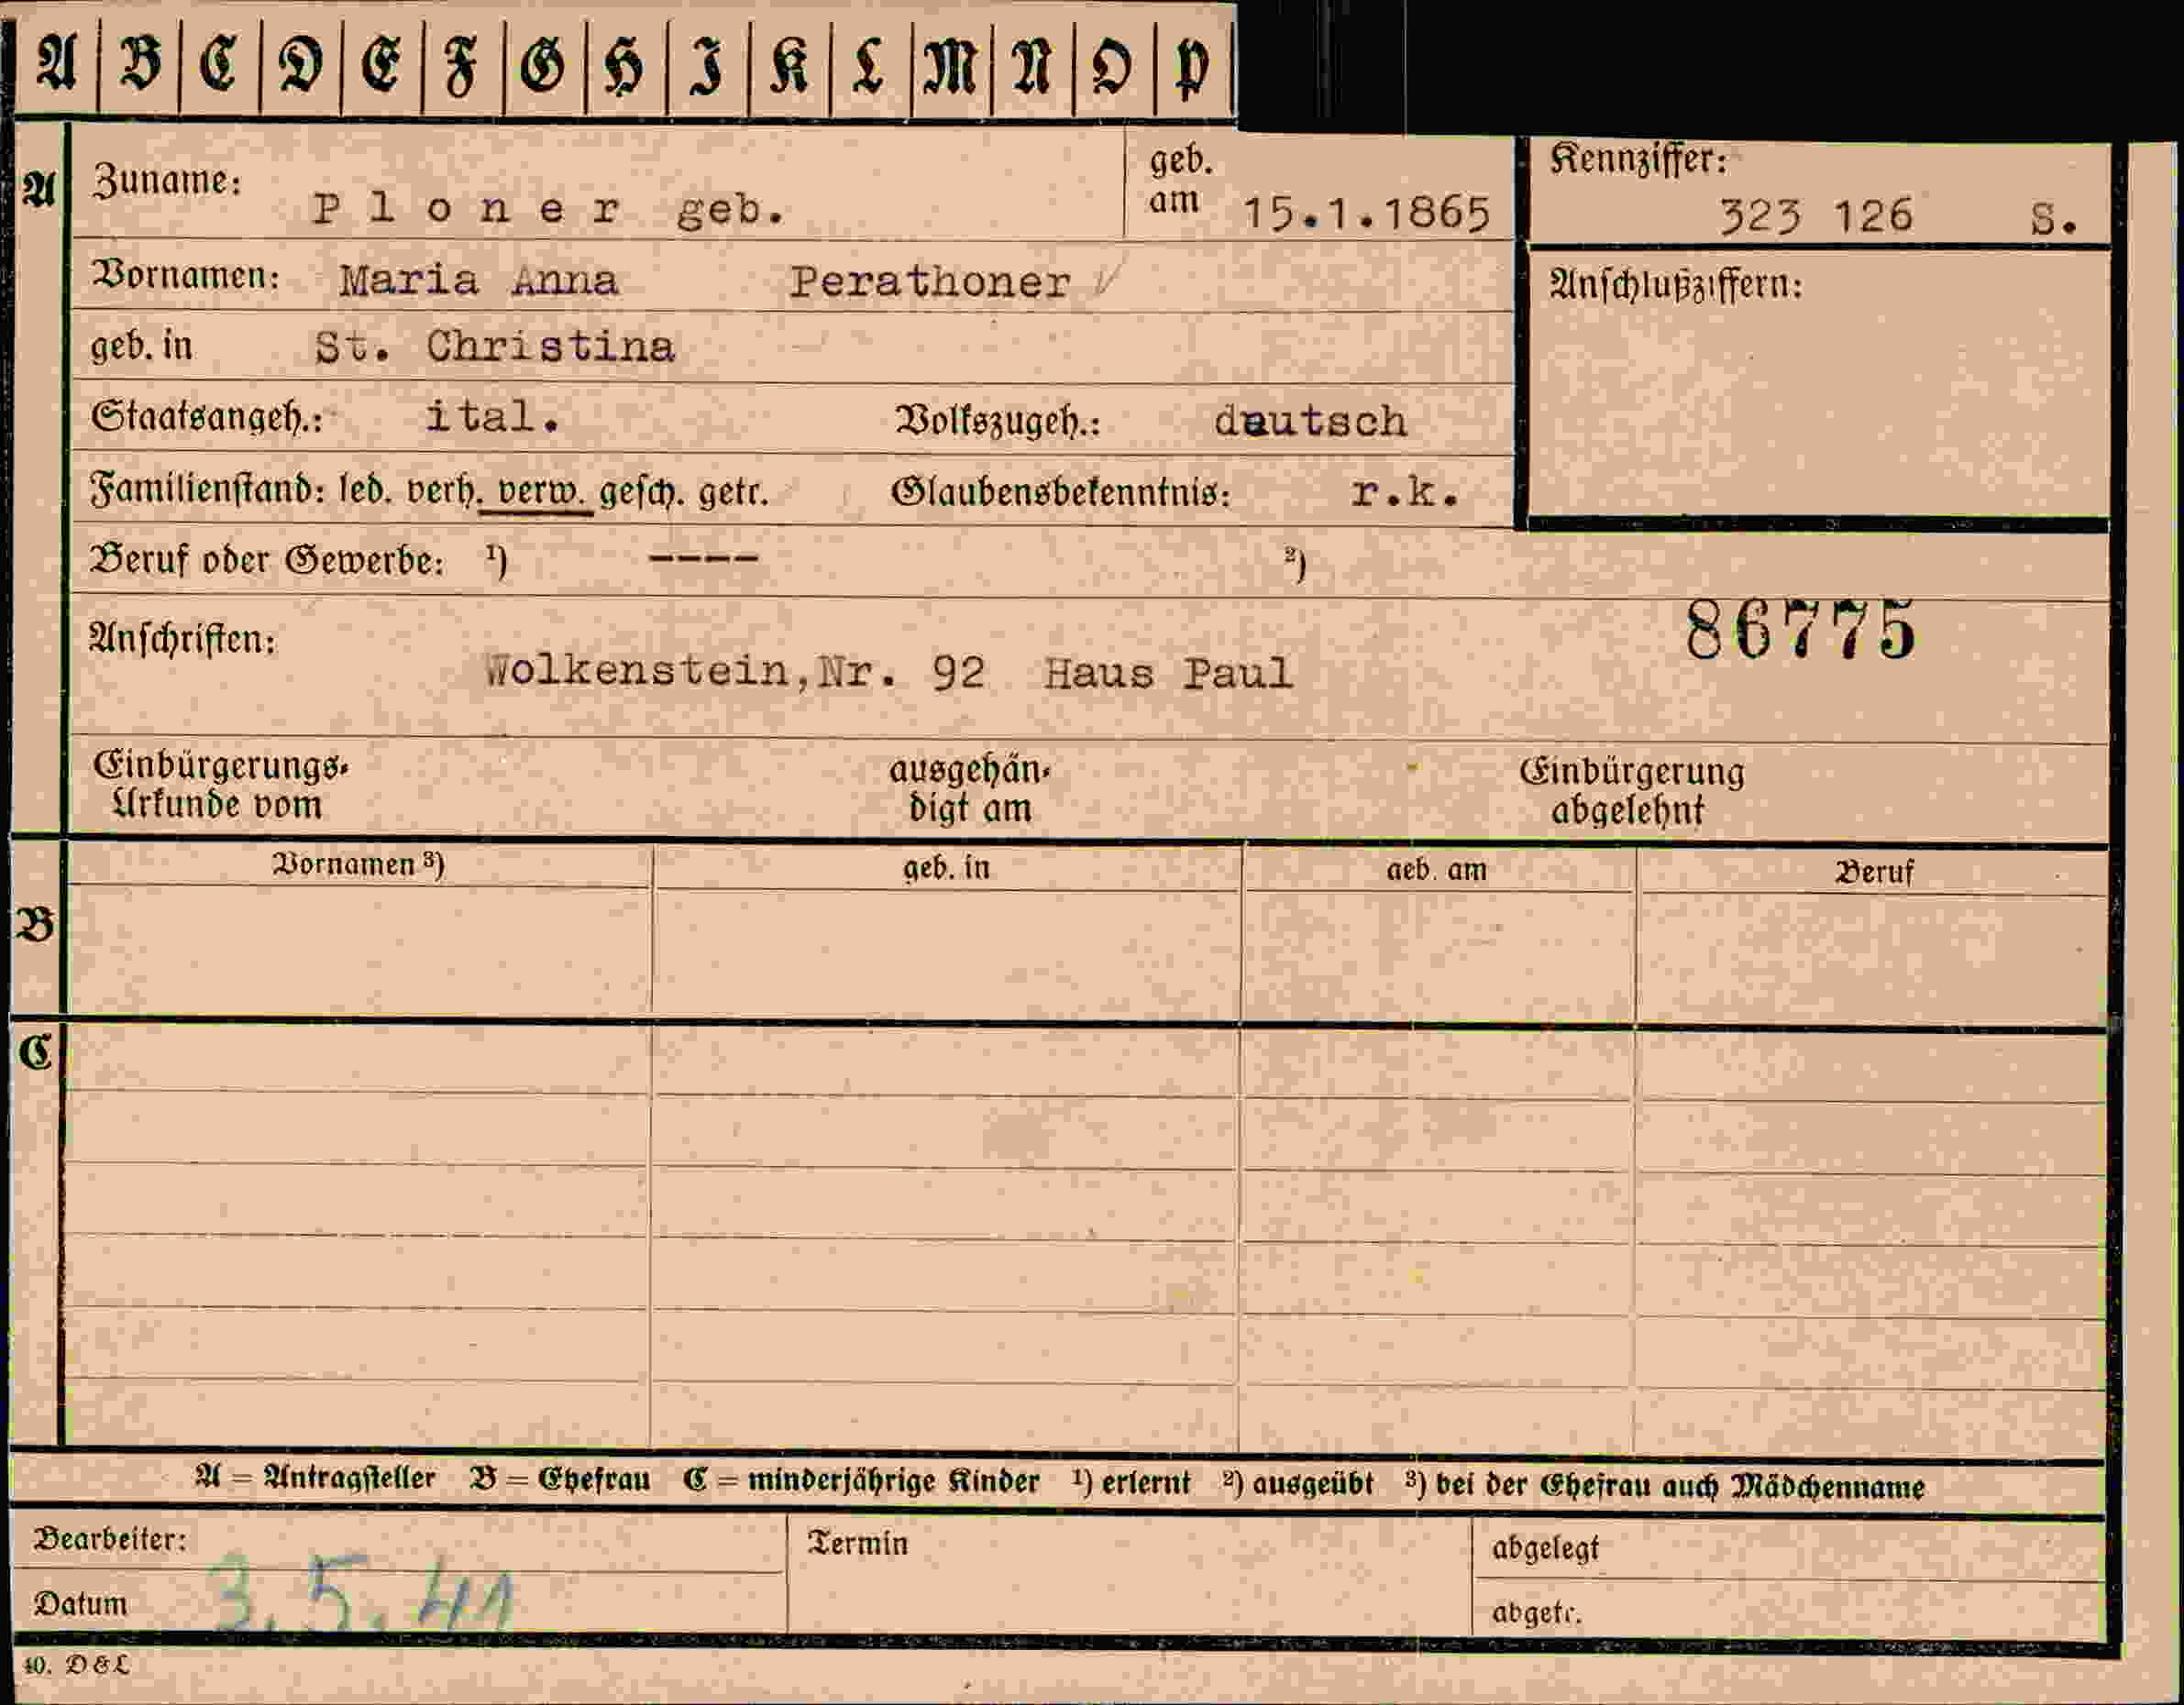 A B C D E F G H I K L M N O P
A Zuname: Ploner geb. geb. am 15.1.1865 Kennziffer: 323 126 S.
Vornamen: Maria Anna Perathoner Anschlußziffern:
geb. in St. Christina
Staatsangeh.: ital. Volkszugeh.: deutsch
Familienstand: led. verh. verw. gesch. getr. Glaubensbekenntnis: r.k.
Beruf oder Gewerbe: ¹) ---- ²)
86775
Anschriften: Wolkenstein,Nr. 92 Haus Paul
Einbürgerungs- ausgehän- Einbürgerung
Urkunde vom digt am abgelehnt
Vornamen ³) geb. in geb. am Beruf
B
C
A = Antragsteller B = Ehefrau C = minderjährige Kinder ¹) erlernt ²) ausgeübt ³) bei der Ehefrau auch Mädchenname
Bearbeiter: Termin abgelegt
Datum 3.5.41 abgetr.
40. D & L